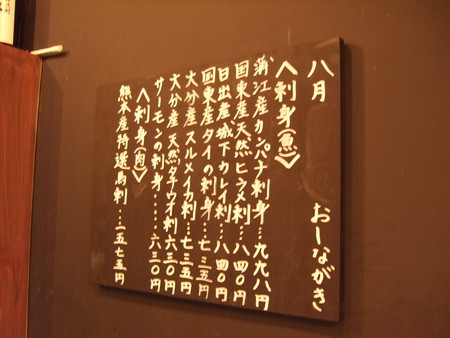 八月 おしながき
＜刺身(魚)＞
蒲江産カンパチ刺身…九九八円
国東産天然ヒラメ刺…八四〇円
日出産城下カレイ刺…八四〇円
国東産タイの刺身…七三五円
大分産スルメイカ刺…七三五円
大分産天然タチウオ刺六三〇円
サーモンの刺身……六三〇円
＜刺身(肉)＞
熊本産特選馬刺…二五七五円